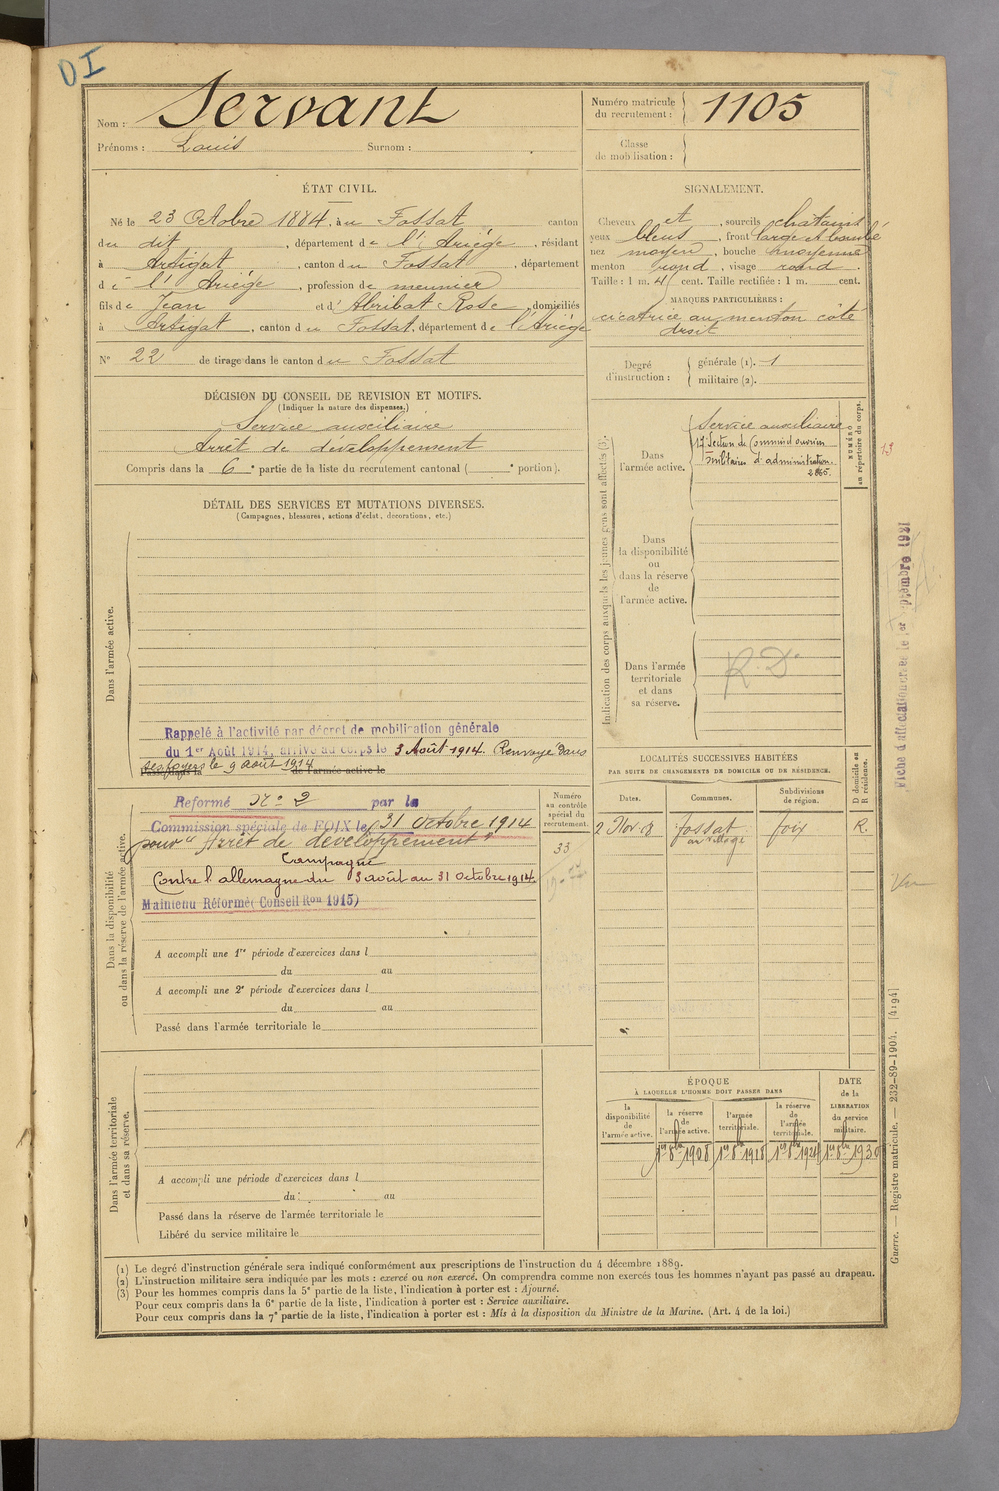 DI
Nom : Servant
Prénoms : Louis Surnom :
Numéro matricule
du recrutement : 1105
Classe
de mobilisation :
ÉTAT CIVIL.
Né le 23 Octobre 1884, à u Fossat canton
du dit, département de l'Ariège, résidant
à Artigat, canton du Fossat, département
de l'Ariège, profession de meunier
fils de Jean et d'Abribat Rose, domiciliés
à Artigat, canton du Fossat, département de l'Ariège
N° 22 de tirage dans le canton du Fossat
DÉCISION DU CONSEIL DE REVISION ET MOTIFS.
(Indiquer la nature des dispenses.)
Service auxiliaire
Arrêt de développement
Compris dans la 6e partie de la liste du recrutement cantonal ( e portion).
DÉTAIL DES SERVICES ET MUTATIONS DIVERSES.
(Campagnes, blessures, actions d'éclat, décorations, etc.)
Dans l'armée active.
Rappelé à l'activité par décret de mobilisation générale
du 1er Août 1914, arrivé au corps le 3 Août 1914. Renvoyé dans
ses foyers le 9 août 1914
Passé dans la de l'armée active le
Dans la disponibilité
ou dans la réserve de l'armée active.
Reformé No 2 par la
Commission spéciale de FOIX le 31 Octobre 1914
pour "Arrêt de développement"
Campagne
Contre l'allemagne du 3 août au 31 octobre 1914.
Maintenu Réformé (Conseil Ron 1915)
A accompli une 1re période d'exercices dans l
du au
A accompli une 2e période d'exercices dans l
du au
Passé dans l'armée territoriale le
Numéro
au contrôle
spécial du
recrutement.
33
Dans l'armée territoriale
et dans sa réserve.
A accompli une période d'exercices dans l
du au
Passé dans la réserve de l'armée territoriale le
Libéré du service militaire le
SIGNALEMENT.
Cheveux et, sourcils chatains
yeux bleus, front large et bombé
nez moyen, bouche moyenne
menton rond, visage rond.
Taille : 1 m. 41 cent. Taille rectifiée : 1 m. cent.
MARQUES PARTICULIÈRES :
cicatrice au menton côté
droit
Degré
d'instruction :
générale (1). 1
militaire (2).
Indication des corps auxquels les jeunes gens sont affectés (3).
NUMÉRO
au répertoire du corps.
Dans
l'armée active.
Service auxiliaire
17e Section de Commis et ouvriers
militaires d'administration.
2865.
13
Dans
la disponibilité
ou
dans la réserve
de
l'armée active.
Dans l'armée
territoriale
et dans
sa réserve.
R. D.
Fiche d'affectation créée le 1er Septembre 1921
LOCALITÉS SUCCESSIVES HABITÉES
PAR SUITE DE CHANGEMENTS DE DOMICILE OU DE RÉSIDENCE.
Dates. Communes. Subdivisions
de région.
D domicile ou
R résidence.
2 Nov 08 fossat foix R.
au village
Vu
ÉPOQUE
À LAQUELLE L'HOMME DOIT PASSER DANS
la
disponibilité
de
l'armée active.
la réserve
de
l'armée active.
l'armée
territoriale.
la réserve
de
l'armée
territoriale.
DATE
de la
LIBÉRATION
du service
militaire.
1er 8bre 1908 1er 8bre 1918 1er 8bre 1924 1er 8bre 1930
Guerre. — Registre matricule. — 232-89-1904. [4194]
(1) Le degré d'instruction générale sera indiqué conformément aux prescriptions de l'instruction du 4 décembre 1889.
(2) L'instruction militaire sera indiquée par les mots : exercé ou non exercé. On comprendra comme non exercés tous les hommes n'ayant pas passé au drapeau.
(3) Pour les hommes compris dans la 5e partie de la liste, l'indication à porter est : Ajourné.
Pour ceux compris dans la 6e partie de la liste, l'indication à porter est : Service auxiliaire.
Pour ceux compris dans la 7e partie de la liste, l'indication à porter est : Mis à la disposition du Ministre de la Marine. (Art. 4 de la loi.)